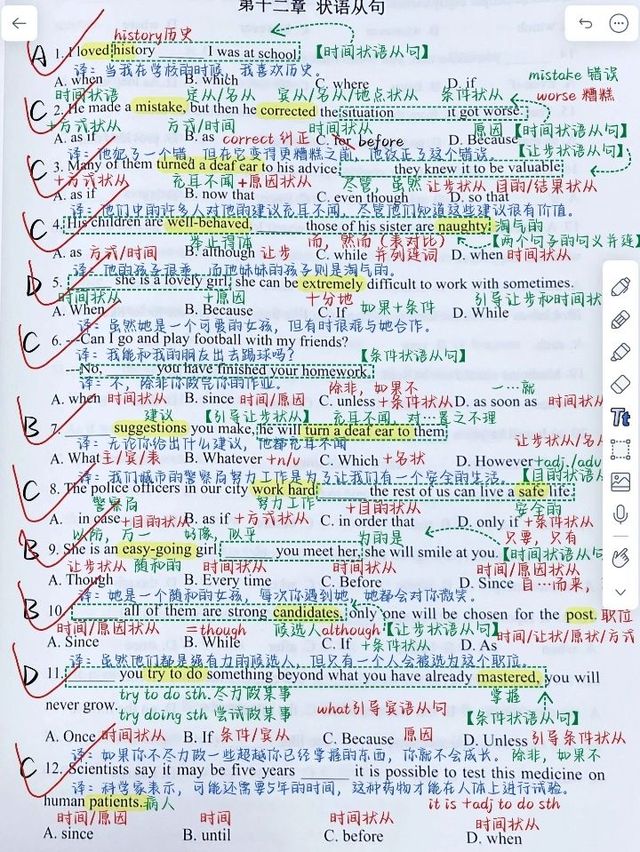 第十二章 状语从句
history历史
A 1. I loved history ______ I was at school. 【时间状语从句】
译：当我在学校的时候，我喜欢历史。
A. when B. which C. where D. if
时间状语 定从/名从 宾从/名从/地点状从 条件状从
mistake 错误
worse 糟糕
C 2. He made a mistake, but then he corrected the situation ______ it got worse.
+方式状从 方式/时间 时间状从 原因 【时间状语从句】
A. as if B. as correct 纠正 C. before D. Because
译：他犯了一个错，但在它变得更糟糕之前，他改正了这个错误。 【让步状语从句】
C 3. Many of them turned a deaf ear to his advice, ______ they knew it to be valuable.
+方式状从 充耳不闻 +原因状从 尽管，虽然 让步状从 目的/结果状从
A. as if B. now that C. even though D. so that
译：他们中的许多人对他的建议充耳不闻，尽管他们知道这些建议很有价值。
C 4. His children are well-behaved, ______ those of his sister are naughty. 淘气的
举止得体 而，然而（表对比） 【两个句子的句义并连
A. as 方式/时间 B. although 让步 C. while 并列连词 D. when 时间状从
译：他的孩子很乖，而他妹妹的孩子则是淘气的。
D 5. ______ she is a lovely girl, she can be extremely difficult to work with sometimes.
时间状从 +原因 十分地 如果+条件 引导让步和时间状
A. When B. Because C. If D. While
译：虽然她是一个可爱的女孩，但有时很难与她合作。
C 6. ---Can I go and play football with my friends?
译：我能和我的朋友出去踢球吗？ 【条件状语从句】
---No, ______ you have finished your homework.
译：不，除非你做完你的作业。 除非，如果不 一…就
A. when 时间状从 B. since 时间/原因 C. unless +条件状从 D. as soon as 时间状从
建议 【引导让步状从】 充耳不闻，对…置之不理
B 7. ______ suggestions you make, he will turn a deaf ear to them.
译：无论你给出什么建议，他都充耳不闻 让步状从/名从
A. What 主/宾/表 B. Whatever +n/u C. Which +名状 D. However+adj./adu
译：我们城市的警察局努力工作是为了让我们有一个安全的生活。 【目的状语从
C 8. The police officers in our city work hard ______ the rest of us can live a safe life.
警察局 努力工作 +目的状从 安全的
A. in case +目的状从 B. as if +方式状从 C. in order that D. only if +条件状从
以防，万一 好像，似乎 为的是 只要，只有
B 9. She is an easy-going girl ______ you meet her, she will smile at you. 【时间状语从句】
让步状从 随和的 时间状从 时间状从 时间/原因状从
A. Though B. Every time C. Before D. Since 自…而来,
译：她是一个随和的女孩，每次你遇到她，她都会对你微笑。
B 10. ______ all of them are strong candidates, only one will be chosen for the post. 职位
时间/原因状从 =though 候选人 although 【让步状语从句】 时间/让状/原状/方式
A. Since B. While C. If +条件状从 D. As
译：虽然他们都是强有力的候选人，但只有一个人会被选为这个职位。
D 11. ______ you try to do something beyond what you have already mastered, you will
try to do sth.尽力做某事 掌握
never grow. try doing sth 尝试做某事 what引导宾语从句 【条件状语从句】
A. Once 时间状从 B. If 条件/宾从 C. Because 原因 D. Unless 引导条件状从
译：如果你不尽力做一些超越你已经掌握的东西，你就不会成长。 除非，如果不
C 12. Scientists say it may be five years ______ it is possible to test this medicine on
译：科学家表示，可能还需要5年的时间，这种药物才能在人体上进行试验。
human patients. 病人 it is +adj to do sth
时间/原因 时间 时间状从 时间状从
A. since B. until C. before D. when
Tt